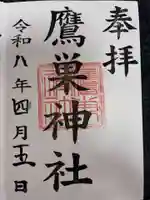 奉拝
鷹巣神社
令和八年四月十五日